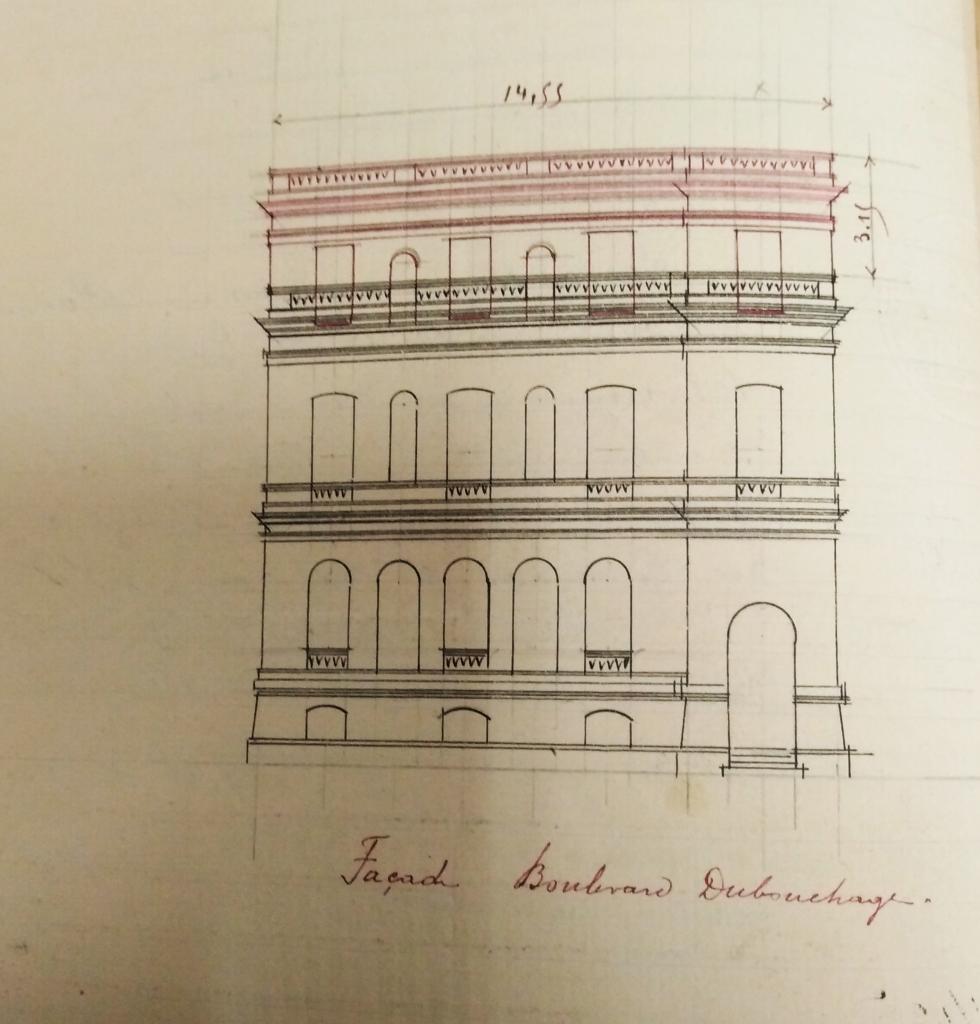 14,55
3.15
Façade Boulevard Dubouchage.